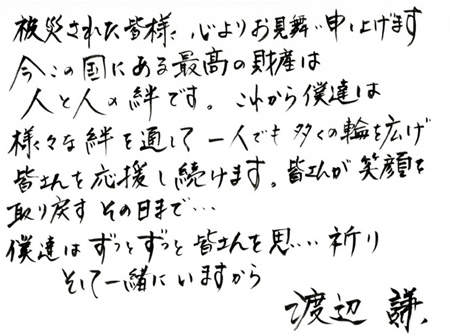 被災された皆様、心よりお見舞い申し上げます
今この国にある最高の財産は
人と人の絆です。これから僕達は
様々な絆を通して一人でも多くの輪を広げ
皆さんを応援し続けます。皆さんが笑顔を
取り戻すその日まで…
僕達はずっとずっと皆さんを思い…祈り
そして一緒にいますから
渡辺 謙